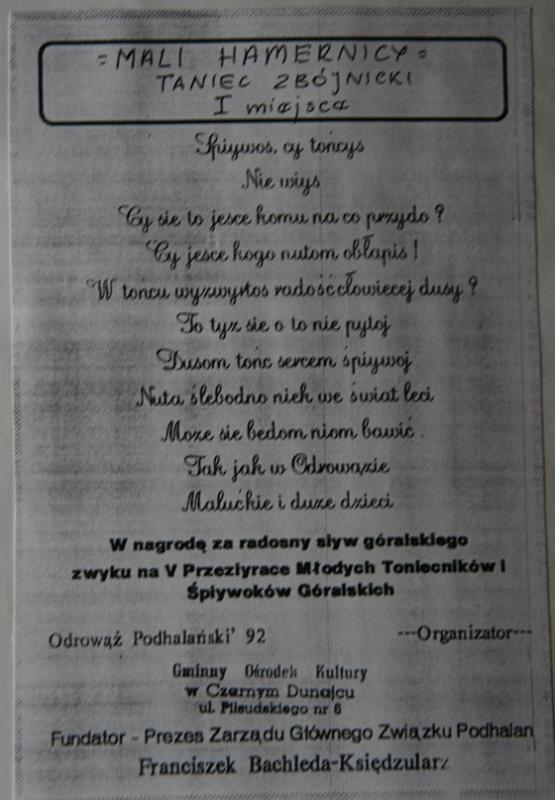 = MALI HAMERNICY =
TANIEC ZBÓJNICKI
I miejsca
Śpiywos, cy tońcys
Nie wiys
Cy sie to jesce komu na co przydo ?
Cy jesce kogo nutom obłapis !
W tońcu wyzwyrtos radość cłowiecej dusy ?
To tyz sie o to nie pytoj
Dusom tońc sercem śpiywoj
Nuta ślebodno niek we świat leci
Moze sie bedom niom bawić
Tak jak w Odrowązie
Malućkie i duze dzieci
W nagrodę za radosny siyw góralskiego
zwyku na V Przeziyrace Młodych Toniecników i
Śpiywoków Góralskich
Odrowąż Podhalański' 92 ---Organizator---
Gminny Ośrodek Kultury
w Czarnym Dunajcu
ul. Piłsudskiego nr 6
Fundator - Prezes Zarządu Głównego Związku Podhalan
Franciszek Bachleda-Księdzularz